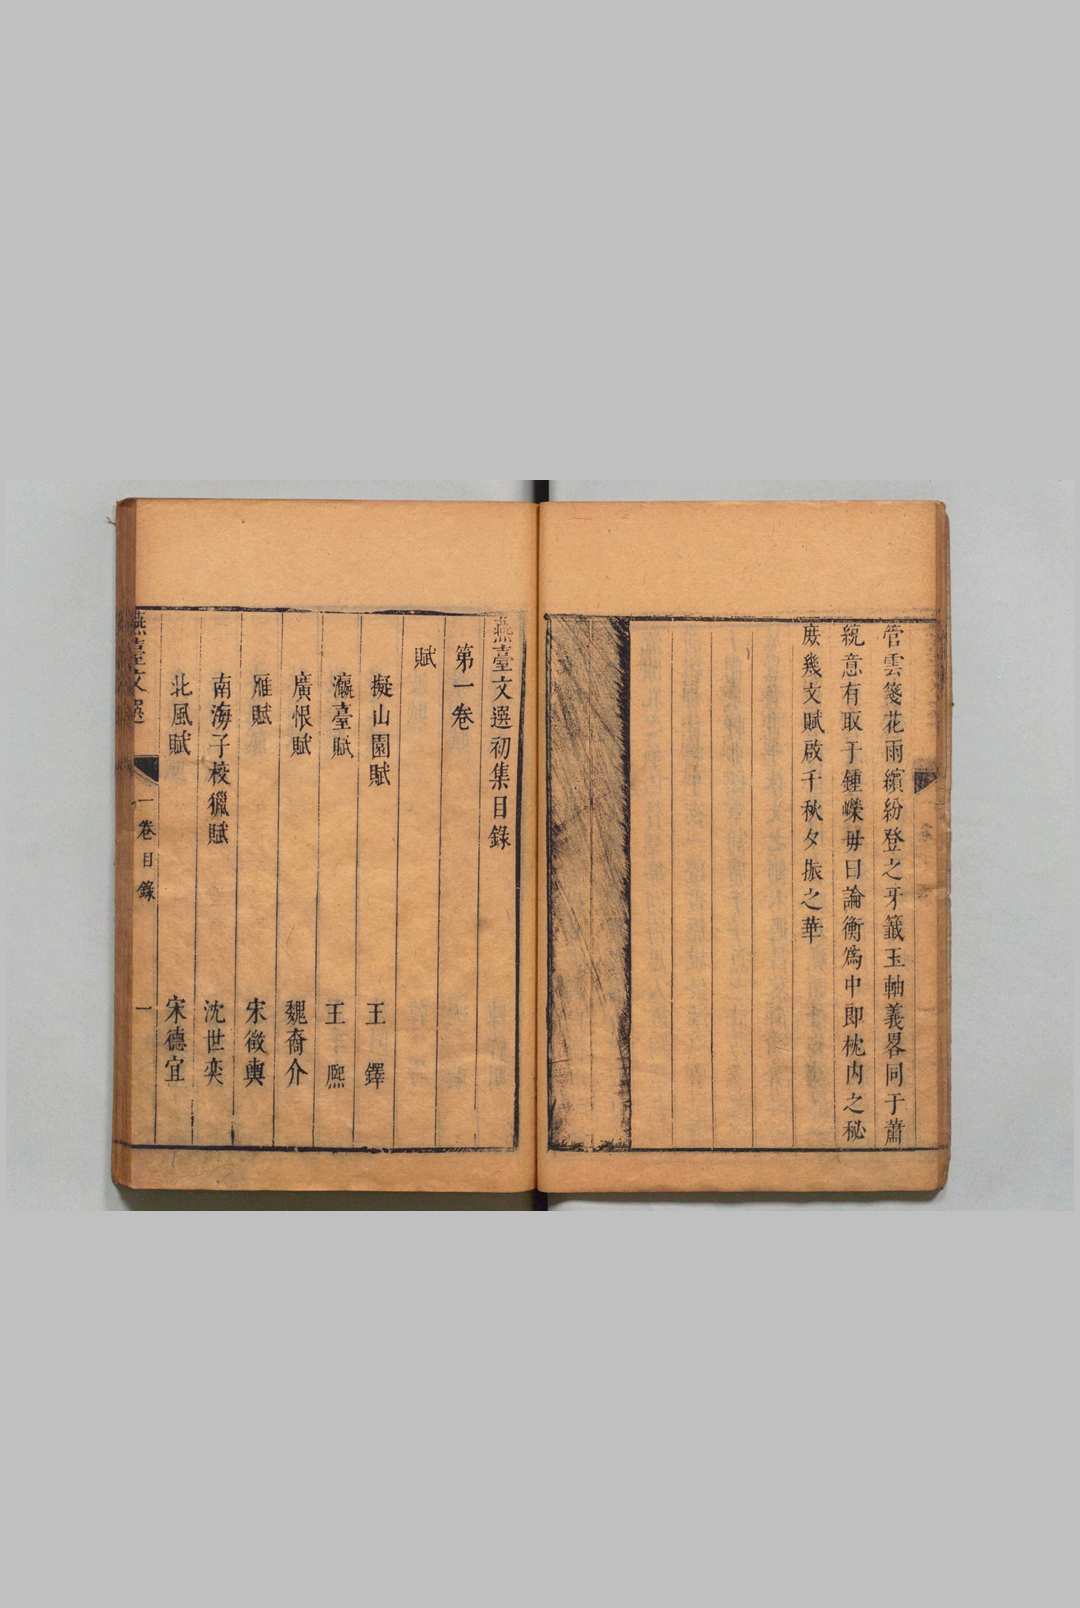 管雲箋花雨繽紛登之牙籤玉軸義畧同于蕭
統意有取于鍾嶸毋曰論衡為中即枕內之秘
庶幾文賦啟千秋夕振之華
燕臺文選初集目錄
第一卷
賦
擬山園賦 王鐸
瀛臺賦 王熙
廣恨賦 魏裔介
雁賦 宋徵輿
南海子校獵賦 沈世奕
北風賦 宋德宜
燕臺文選 一卷目錄 一